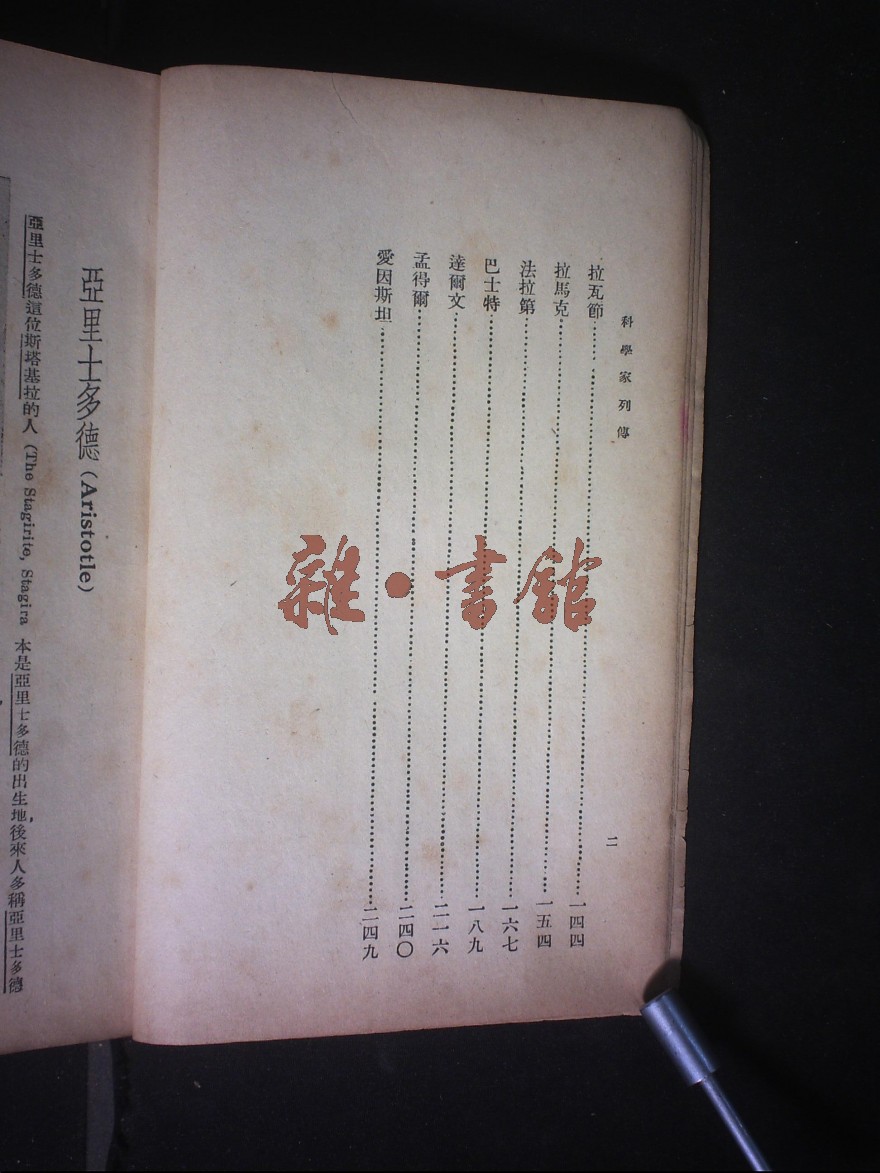 科學家列傳
二
拉瓦節……一四四
拉馬克……一五四
法拉第……一六七
巴士特……一八九
達爾文……二一六
孟得爾……二四〇
愛因斯坦……二四九
雜·書館
亞里士多德(Aristotle)
亞里士多德這位斯塔基拉的人 (The Stagirite, Stagira 本是亞里士多德的出生地，後來人多稱亞里士多德